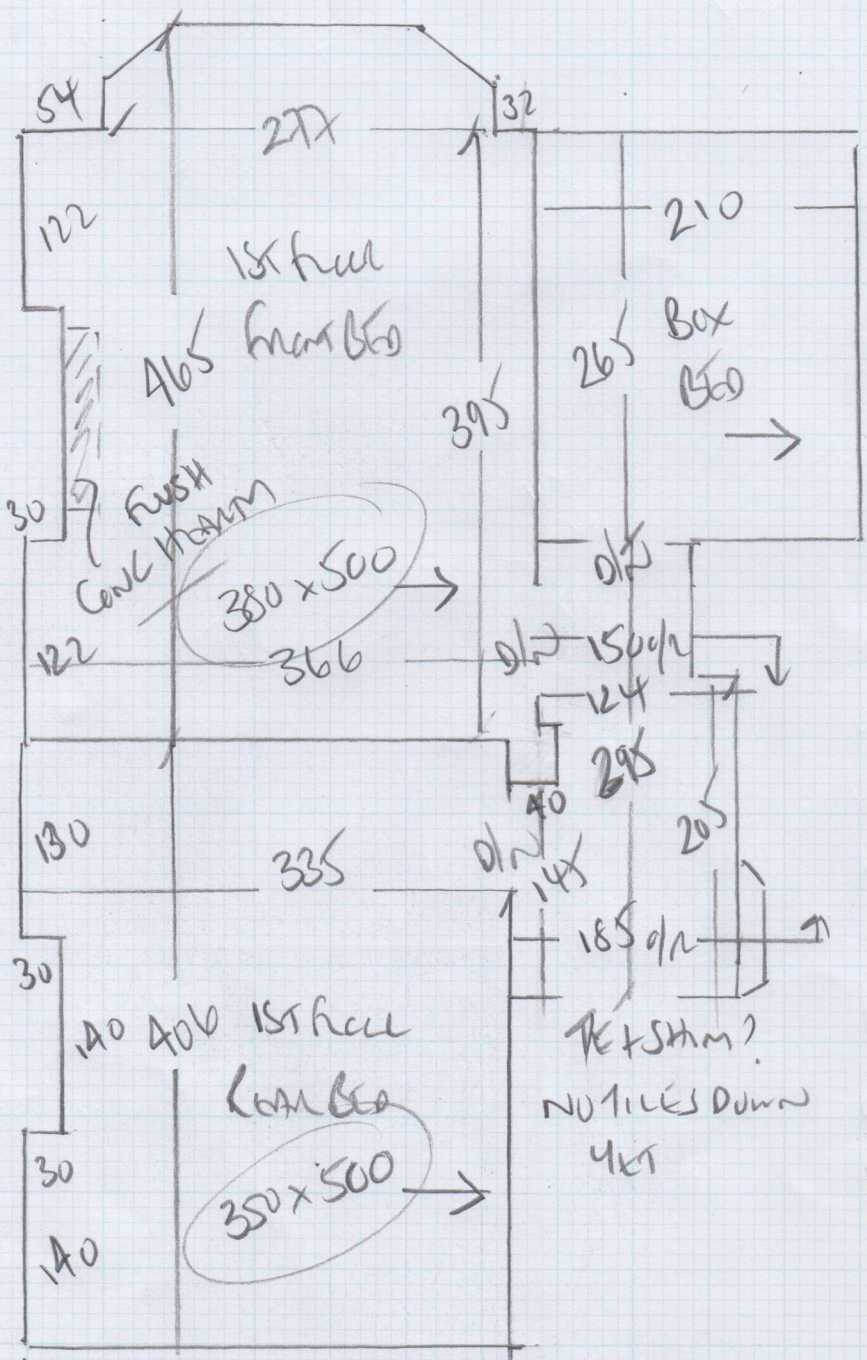 54
277
32
122
210
1ST FLOOR
FRONT BED
465
265
BOX
BED
395
30
FLUSH
CONC HEARTH
380 x 500
D/W
122
366
D/W
150 o/r
124
295
40
205
130
335
D/W
145
185 o/r
30
140
406
1ST FLOOR
REAR BED
NO TILES DOWN
YET
30
350 x 500
140